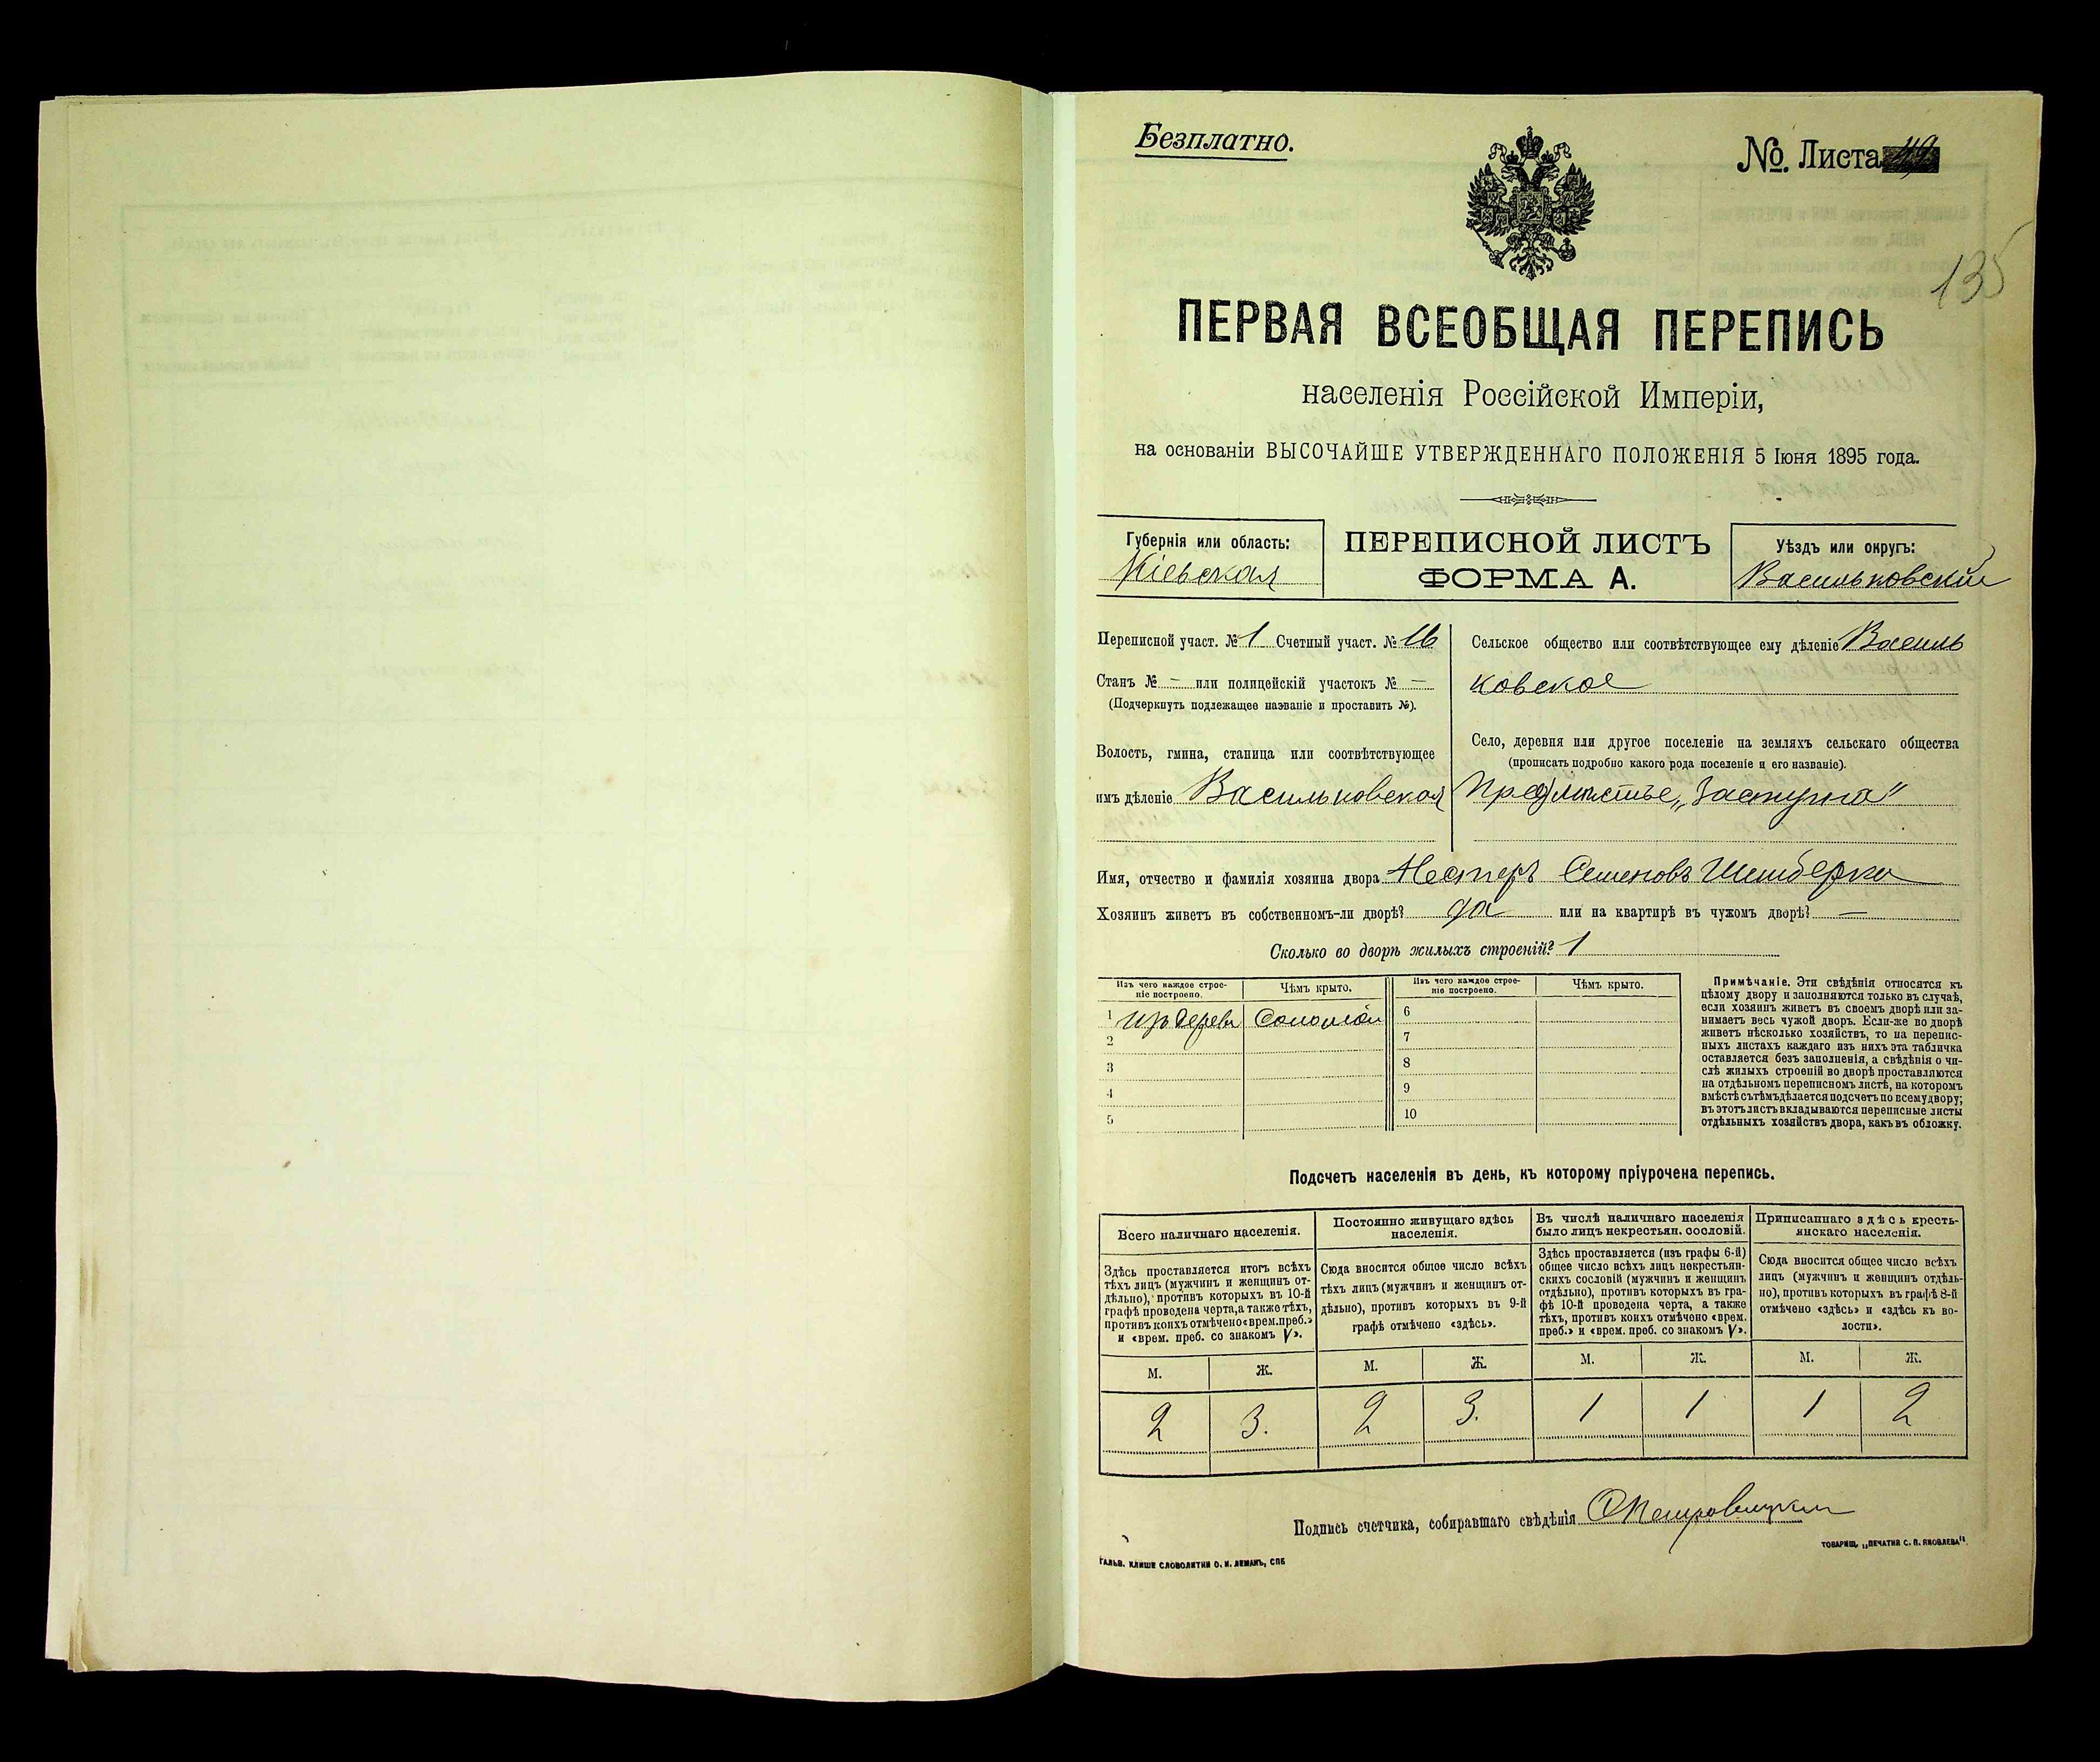 Безплатно.
№ Листа 49
135
ПЕРВАЯ ВСЕОБЩАЯ ПЕРЕПИСЬ
населенія Россійской Имперіи,
на основаніи ВЫСОЧАЙШЕ УТВЕРЖДЕННАГО ПОЛОЖЕНІЯ 5 Іюня 1895 года.
Губернія или область:
Кіевская
ПЕРЕПИСНОЙ ЛИСТЪ
ФОРМА А.
Уѣздъ или округъ:
Васильковскій
Переписной участ. № 1 Счетный участ. № 16
Станъ № — или полицейскій участокъ № —
(Подчеркнуть подлежащее названіе и проставить №).
Волость, гмина, станица или соотвѣтствующее
имъ дѣленіе Васильковская
Сельское общество или соотвѣтствующее ему дѣленіе Василь
ковское
Село, деревня или другое поселеніе на земляхъ сельскаго общества
(прописать подробно какого рода поселеніе и его названіе).
Предмѣстье „Заступна"
Имя, отчество и фамилія хозяина двора Несперъ Семеновъ
Хозяинъ живетъ въ собственномъ-ли дворѣ? да или на квартирѣ въ чужомъ дворѣ? —
Сколько во дворѣ жилыхъ строеній? 1
Изъ чего каждое строе-
ніе построено.
Чѣмъ крыто.
Изъ чего каждое строе-
ніе построено.
Чѣмъ крыто.
1 изъ дерева Соломой 6
2 7
3 8
4 9
5 10
Примѣчаніе. Эти свѣдѣнія относятся къ
цѣлому двору и заполняются только въ случаѣ,
если хозяинъ живетъ въ своемъ дворѣ или за-
нимаетъ весь чужой дворъ. Если-же во дворѣ
живетъ нѣсколько хозяйствъ, то на перепис-
ныхъ листахъ каждаго изъ нихъ эта табличка
оставляется безъ заполненія, а свѣдѣнія о чи-
слѣ жилыхъ строеній во дворѣ проставляются
на отдѣльномъ переписномъ листѣ, на которомъ
вмѣстѣ съ тѣмъ дѣлается подсчетъ по всему двору;
въ этотъ листъ вкладываются переписные листы
отдѣльныхъ хозяйствъ двора, какъ въ обложку.
Подсчетъ населенія въ день, къ которому пріурочена перепись.
Всего наличнаго населенія.
Здѣсь проставляется итогъ всѣхъ
тѣхъ лицъ (мужчинъ и женщинъ от-
дѣльно), противъ которыхъ въ 10-й
графѣ проведена черта, а также тѣхъ,
противъ коихъ отмѣчено «врем. преб.»
и «врем. преб. со знакомъ V».
М. Ж.
2 3.
Постоянно живущаго здѣсь
населенія.
Сюда вносится общее число всѣхъ
тѣхъ лицъ (мужчинъ и женщинъ от-
дѣльно), противъ которыхъ въ 9-й
графѣ отмѣчено «здѣсь».
М. Ж.
2 3.
Въ числѣ наличнаго населенія
было лицъ некрестьян. сословій.
Здѣсь проставляется (изъ графы 6-й)
общее число всѣхъ лицъ некрестьян-
скихъ сословій (мужчинъ и женщинъ
отдѣльно), противъ которыхъ въ гра-
фѣ 10-й проведена черта, а также
тѣхъ, противъ коихъ отмѣчено «врем.
преб.» и «врем. преб. со знакомъ V».
М. Ж.
1 1
Приписаннаго здѣсь кресть-
янскаго населенія.
Сюда вносится общее число всѣхъ
лицъ (мужчинъ и женщинъ отдѣль-
но), противъ которыхъ въ графѣ 8-й
отмѣчено «здѣсь» и «здѣсь къ во-
лости».
М. Ж.
1 2
Подпись счетчика, собиравшаго свѣдѣнія
ГАЛЬВ. КЛИШЕ СЛОВОЛИТНИ О. И. ЛЕМАНЪ, СПБ
ТОВАРИЩ. „ПЕЧАТНЯ С. П. ЯКОВЛЕВА".